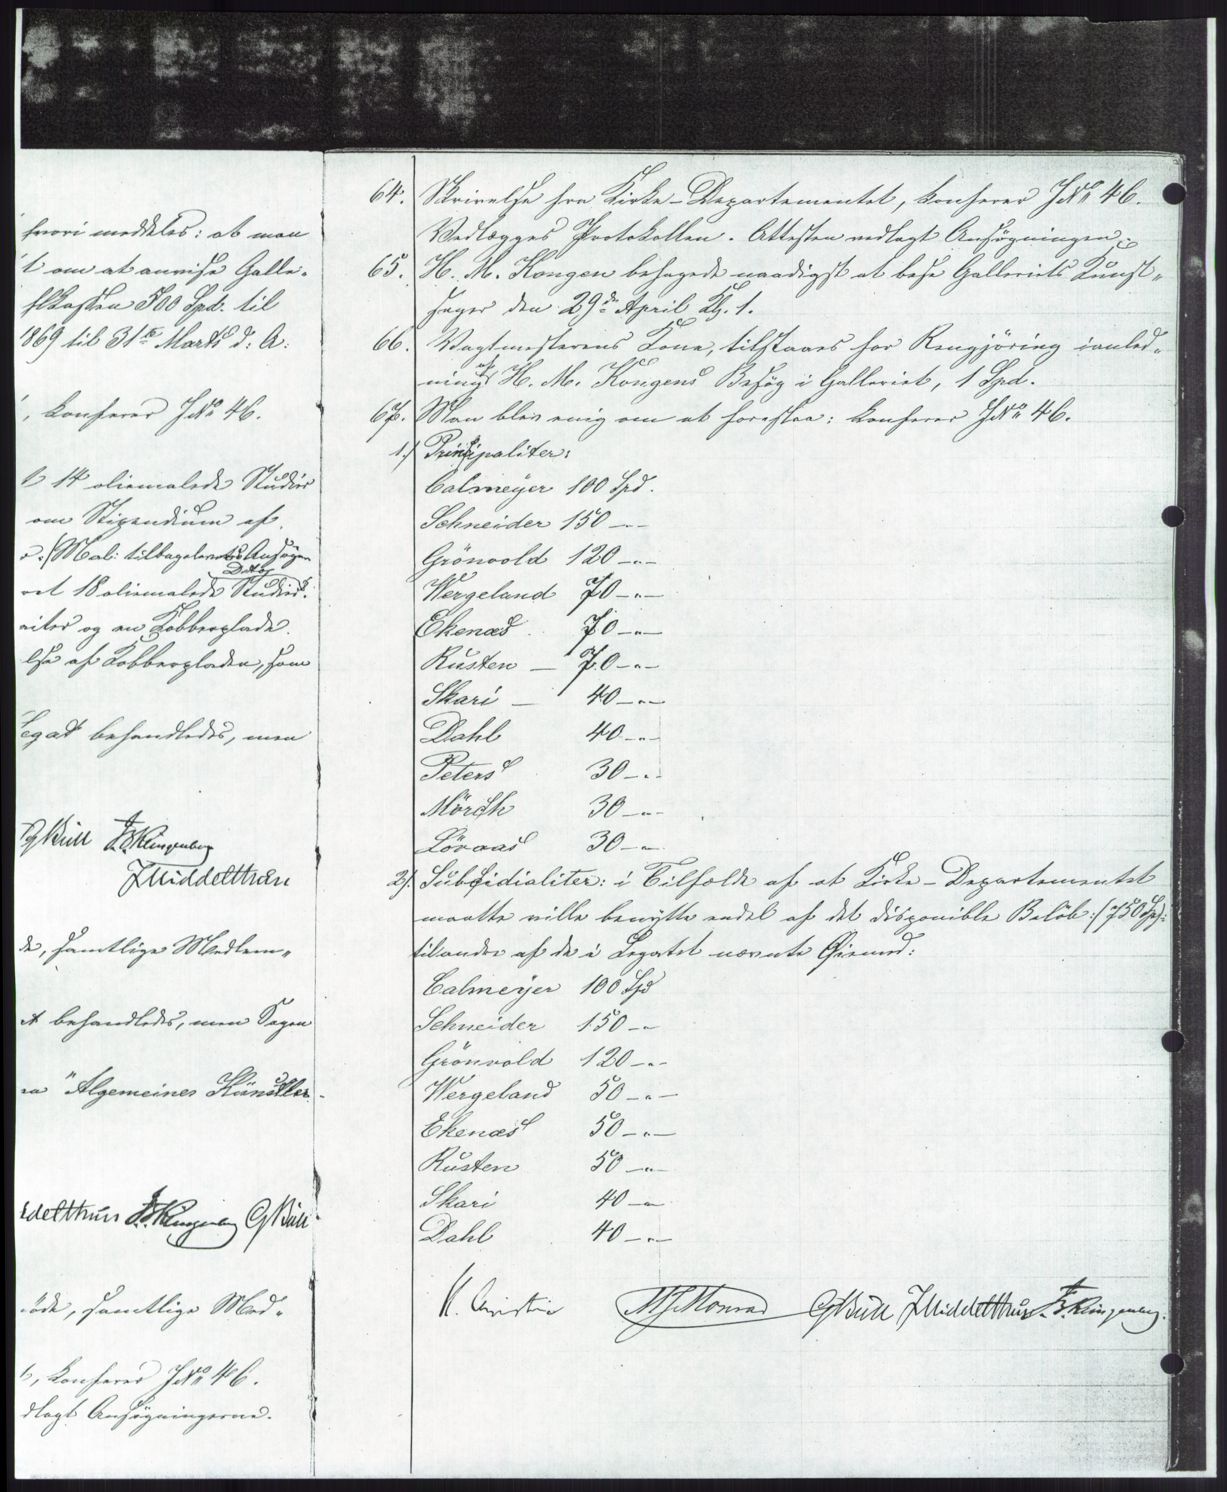 hvori meddeles: at man
t om at anvise Galle-
slkassen 500 Spd. til
1869 til 31te Marts d: A:
, konferer JNo 46.
14 oliemalede Studier
om Stipendium af
Mal: tilbageleveredes Ansøgn
Dato
vet 18 oliemalede Studier.
og en Kobberplade.
lse af Kobberpladen, som
Legat behandledes, men
GBull FBKlingenberg
JMiddelthun
de, samtlige Medlem-
et behandledes, men Sagen
"Algemeines Künstler-
ddelthun FBKlingenberg GBull
öde, samtlige Med-
, konferer JNo 46.
dlagt Ansögningerne.
64. Skrivelse fra Kirke-Departementet, konferer JNo 46.
Vedlægges Protokollen. Attesten vedlagt Ansögningen.
65. H. M. Kongen behagede naadigst at bese Galleriets Kunst-
sager den 29de April Kl. 1.
66. Vagtmesterens Kone, tilstaaes for Rengjöring ianled-
ning af H. M. Kongens Besög i Galleriet, 1 Spd.
67. Man blev enig om at foreslaa: konferer JNo 46.
1./ Principaliter:
Calmeyer 100 Spd.
Schneider 150 -"-
Grönvold 120 -"-
Wergeland 70 -"-
Ekenæs 70 -"-
Rusten - 70 -"-
Skari - 40 -"-
Dahl 40 -"-
Peters 30 -"-
Mörch 30 -"-
Lövaas 30 -"-
2/. Subsidialiter: i Tilfælde af at Kirke-Departementet
maatte ville benytte endel af det disponible Belöb :/750 Spd/:
tilandre af de i Legatet nævnte Öiemed:
Calmeyer 100 Spd
Schneider 150 -"-
Grönvold 120 -"-
Wergeland 50 -"-
Ekenæs 50 -"-
Rusten 50 -"-
Skari 40 -"-
Dahl 40 -"-
H. Christie MJMonrad GBull JMiddelthun FBKlingenberg.